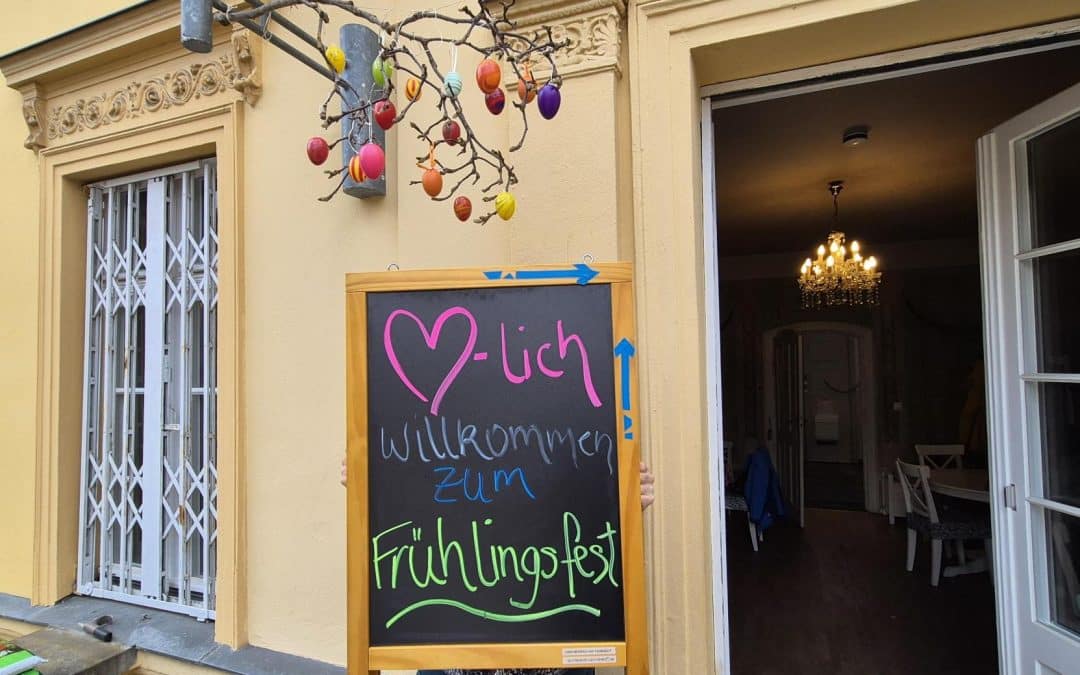 ♡-lich
Willkommen
zum
Frühlingsfest